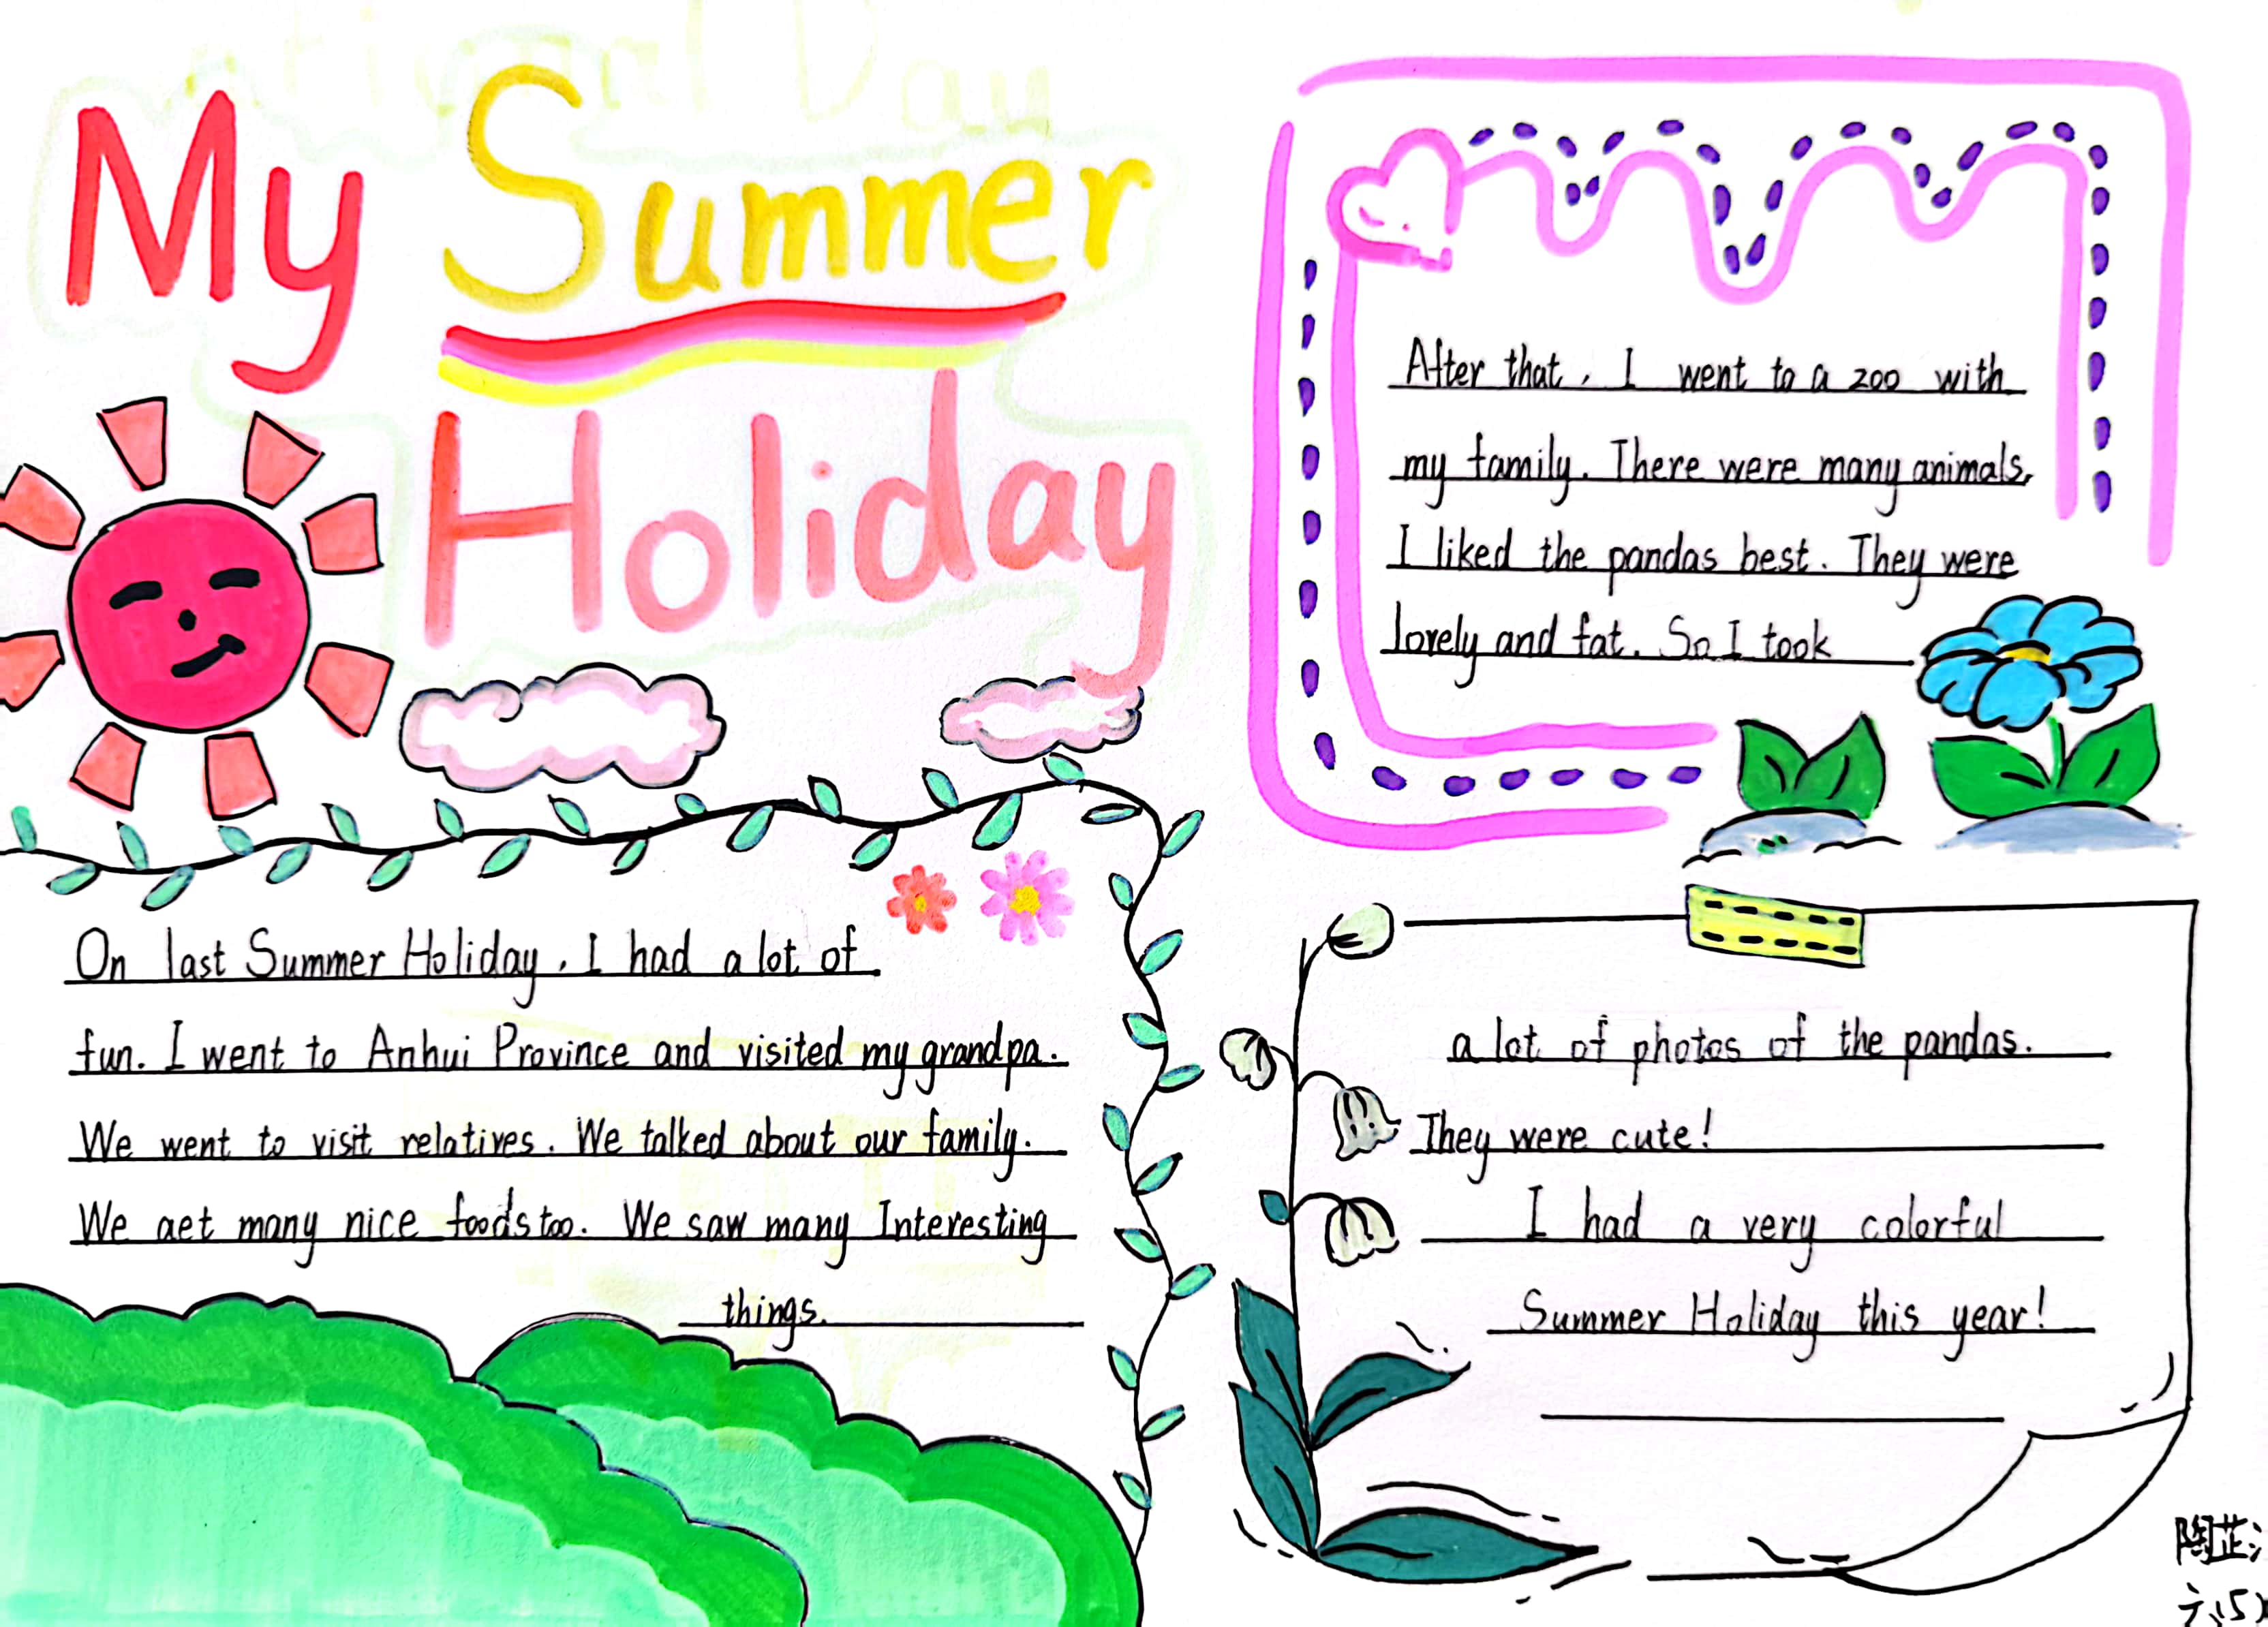 My Summer
Holiday
On last Summer Holiday, I had a lot of
fun. I went to Anhui Province and visited my grandpa.
We went to visit relatives. We talked about our family.
We aet many nice foods too. We saw many Interesting
things.
After that, I went to a zoo with
my family. There were many animals,
I liked the pandas best. They were
lovely and fat. So I took
a lot of photos of the pandas.
They were cute!
I had a very colorful
Summer Holiday this year!
陶芷
六(5)